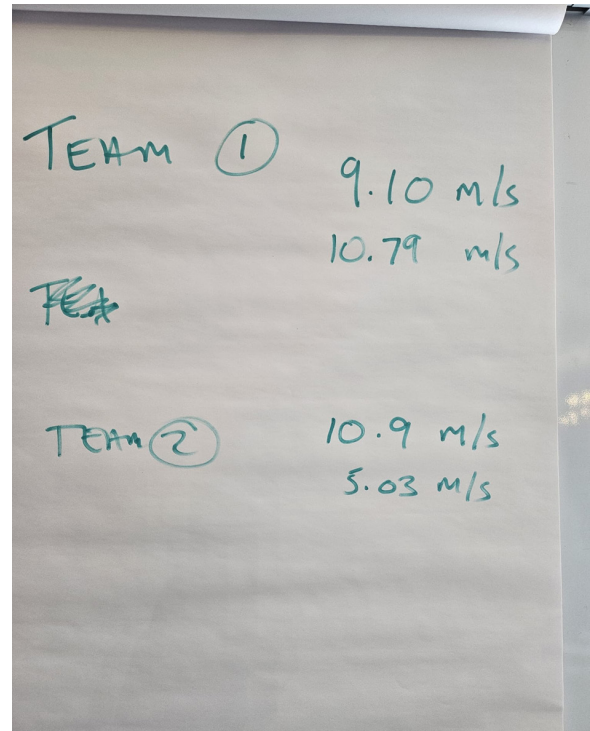 TEAM 1
9.10 m/s
10.79 m/s
TEAM 2
10.9 m/s
5.03 m/s